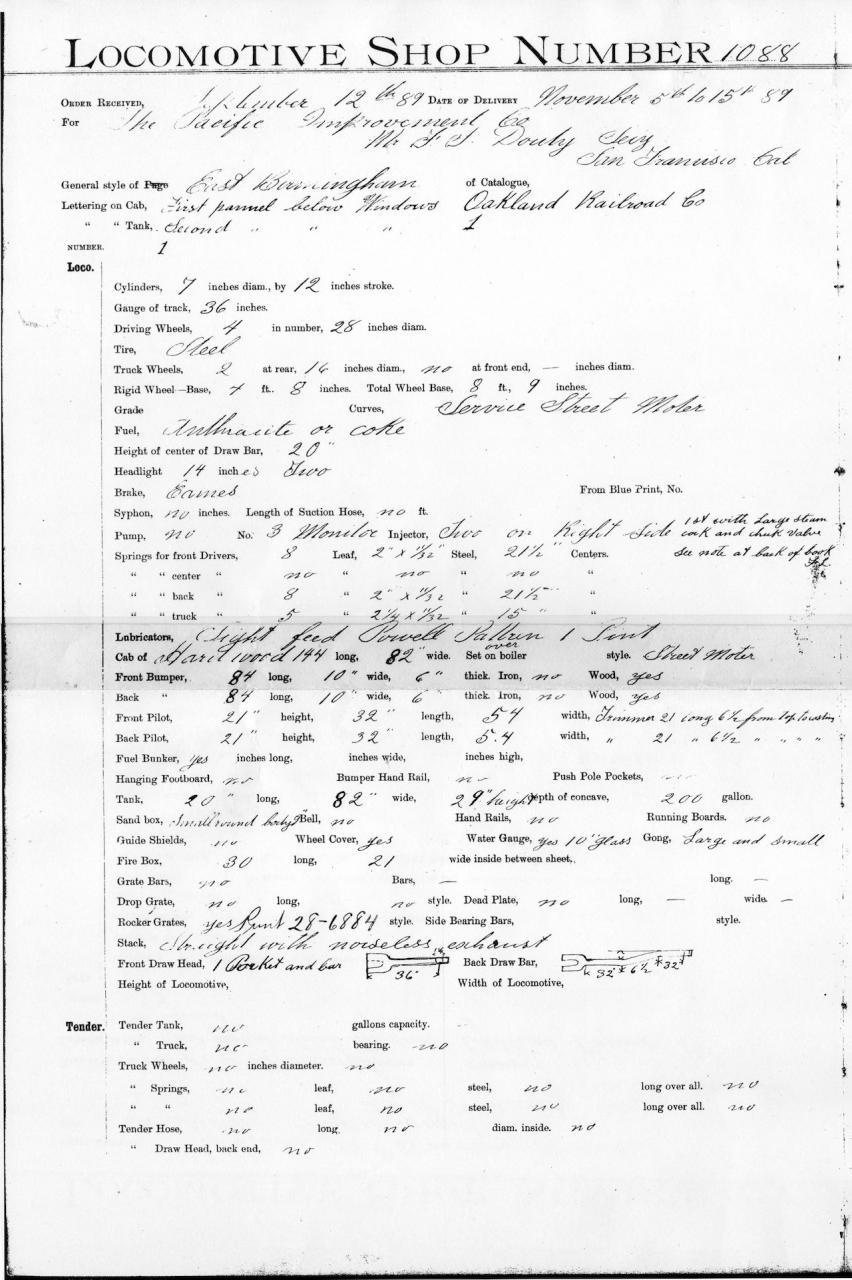 LOCOMOTIVE SHOP NUMBER 1088
ORDER RECEIVED, September 12th 89 DATE OF DELIVERY November 5th to 15th 89
FOR The Pacific Improvement Co
Mr F. S. Douty Secy
San Francisco Cal
General style of Page East Birmingham of Catalogue,
Lettering on Cab, First pannel below Windows Oakland Railroad Co
" " Tank, Second " " " 1
NUMBER. 1
Loco.
Cylinders, 7 inches diam., by 12 inches stroke.
Gauge of track, 36 inches.
Driving Wheels, 4 in number, 28 inches diam.
Tire, Steel
Truck Wheels, 2 at rear, 16 inches diam., no at front end, — inches diam.
Rigid Wheel-Base, 4 ft. 8 inches. Total Wheel Base, 8 ft., 9 inches.
Grade Curves, Service Street Moter
Fuel, Anthracite or coke
Height of center of Draw Bar, 20"
Headlight 14 inches Two
Brake, Eames From Blue Print, No.
Syphon, no inches. Length of Suction Hose, no ft.
Pump, no No. 3 Monitor Injector, Two on Right Side 1st with Large steam
cock and chek valve
see note at back of book
Springs for front Drivers, 8 Leaf, 2" x 11/32" Steel, 21 1/2" Centers.
" " center " no " no " no "
" " back " 8 " 2" x 11/32 " 21 1/2" "
" " truck " 5 " 2 1/4 x 11/32 " 15 " "
Lubricators, Sight feed Powell Pattern 1 Pint
Cab of Hard wood 144 long, 82" wide. Set on over boiler style. Street Moter
Front Bumper, 84 long, 10" wide, 6" thick. Iron, no Wood, yes
Back " 84 long, 10" wide, 6" thick. Iron, no Wood, yes
Front Pilot, 21" height, 32" length, 54 width, Trimmer 21 long 6 1/2 from top to
Back Pilot, 21" height, 32" length, 54 width, " 21 " 6 1/2 " " " "
Fuel Bunker, yes inches long, inches wide, inches high,
Hanging Footboard, no Bumper Hand Rail, no Push Pole Pockets, no
Tank, 20" long, 82" wide, 29" height Depth of concave, 200 gallon.
Sand box, Small round body Bell, no Hand Rails, no Running Boards. no
Guide Shields, no Wheel Cover, yes Water Gauge, yes 10" glass Gong, Large and small
Fire Box, 30 long, 21 wide inside between sheet,
Grate Bars, no Bars, — long. —
Drop Grate, no long, no style. Dead Plate, no long, — wide. —
Rocker Grates, yes Print 28-6884 style. Side Bearing Bars, style.
Stack, Straight with noiseless exhaust
Front Draw Head, 1 Pocket and bar 36" Back Draw Bar, 32" 6 1/2 32"
Height of Locomotive, Width of Locomotive,
Tender.
Tender Tank, no gallons capacity.
" Truck, no bearing. no
Truck Wheels, no inches diameter. no
" Springs, no leaf, no steel, no long over all. no
" " no leaf, no steel, no long over all. no
Tender Hose, no long. no diam. inside. no
" Draw Head, back end, no